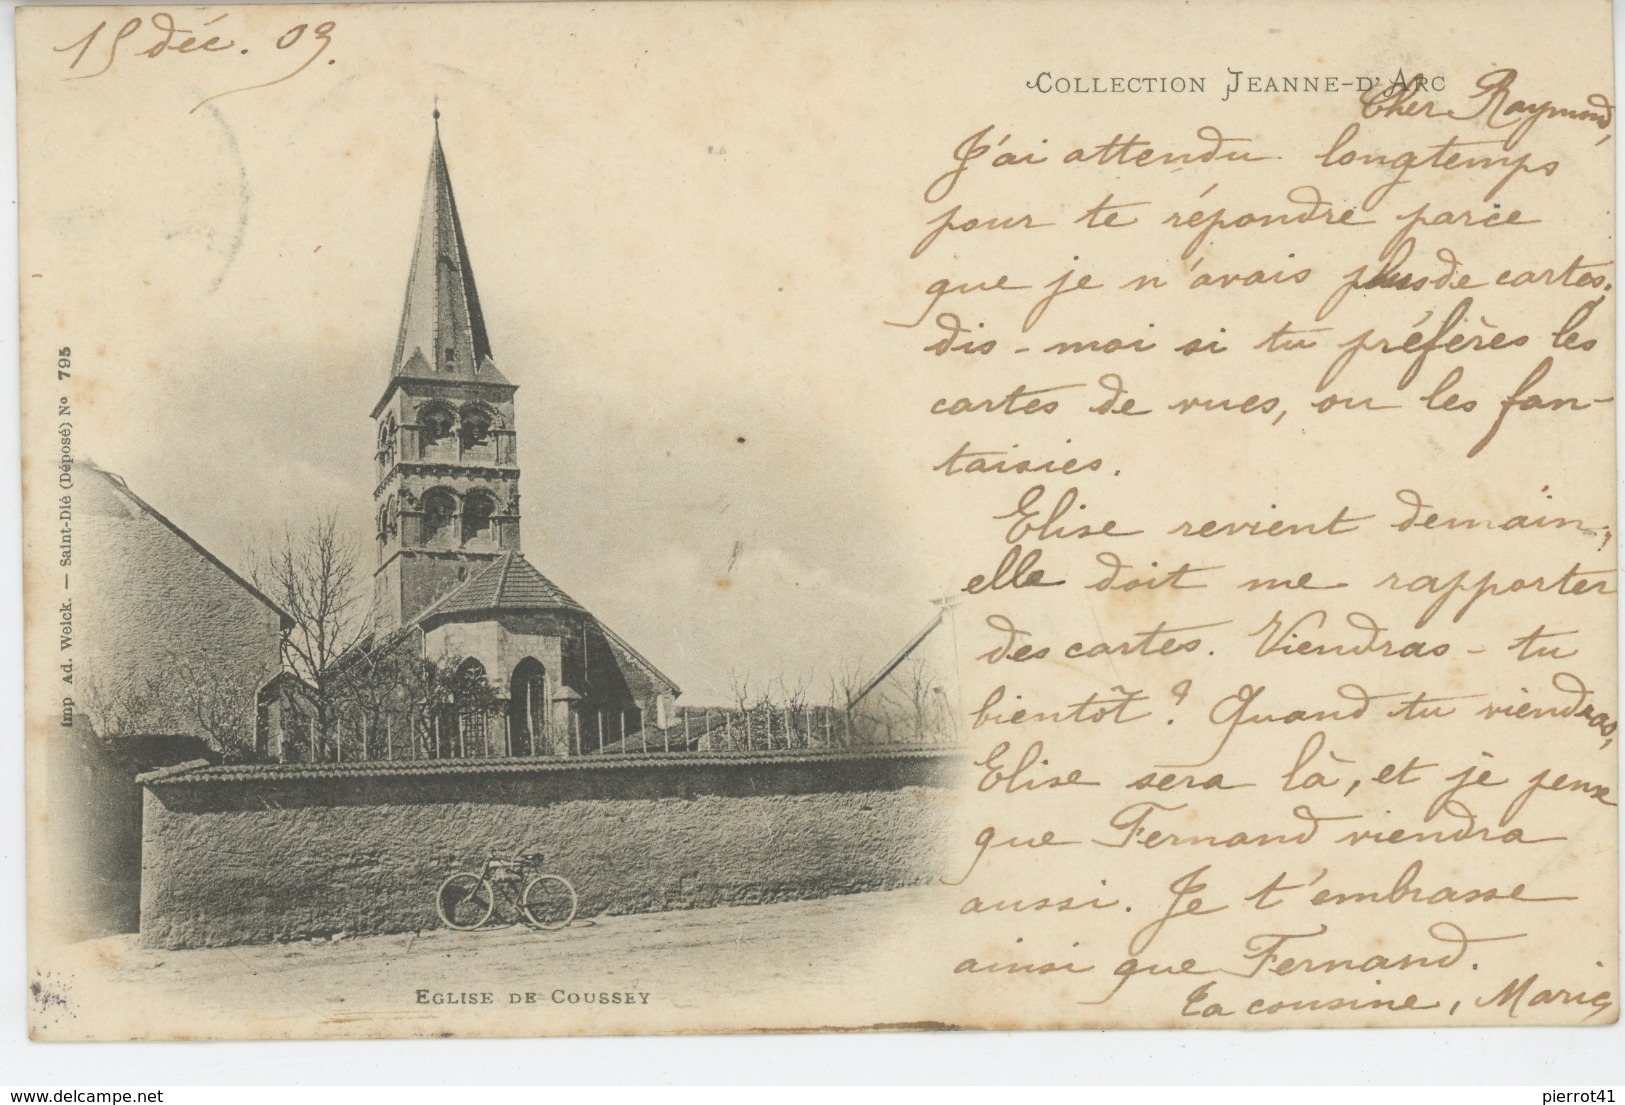 15 déc. 03.
COLLECTION JEANNE-D'ARC
Cher Raymond,
J'ai attendu longtemps
pour te répondre parce
que je n'avais plus de cartes.
dis-moi si tu préfères les
cartes de vues, ou les fan-
taisies.
Elise revient demain;
elle doit me rapporter
des cartes. Viendras-tu
bientôt? Quand tu viendras,
Elise sera là, et je pense
que Fernand viendra
aussi. Je t'embrasse
ainsi que Fernand.
Ta cousine, Marie
Imp Ad. Weick. — Saint-Dié (Déposé) No 795
EGLISE DE COUSSEY
delcampe.net
pierrot41